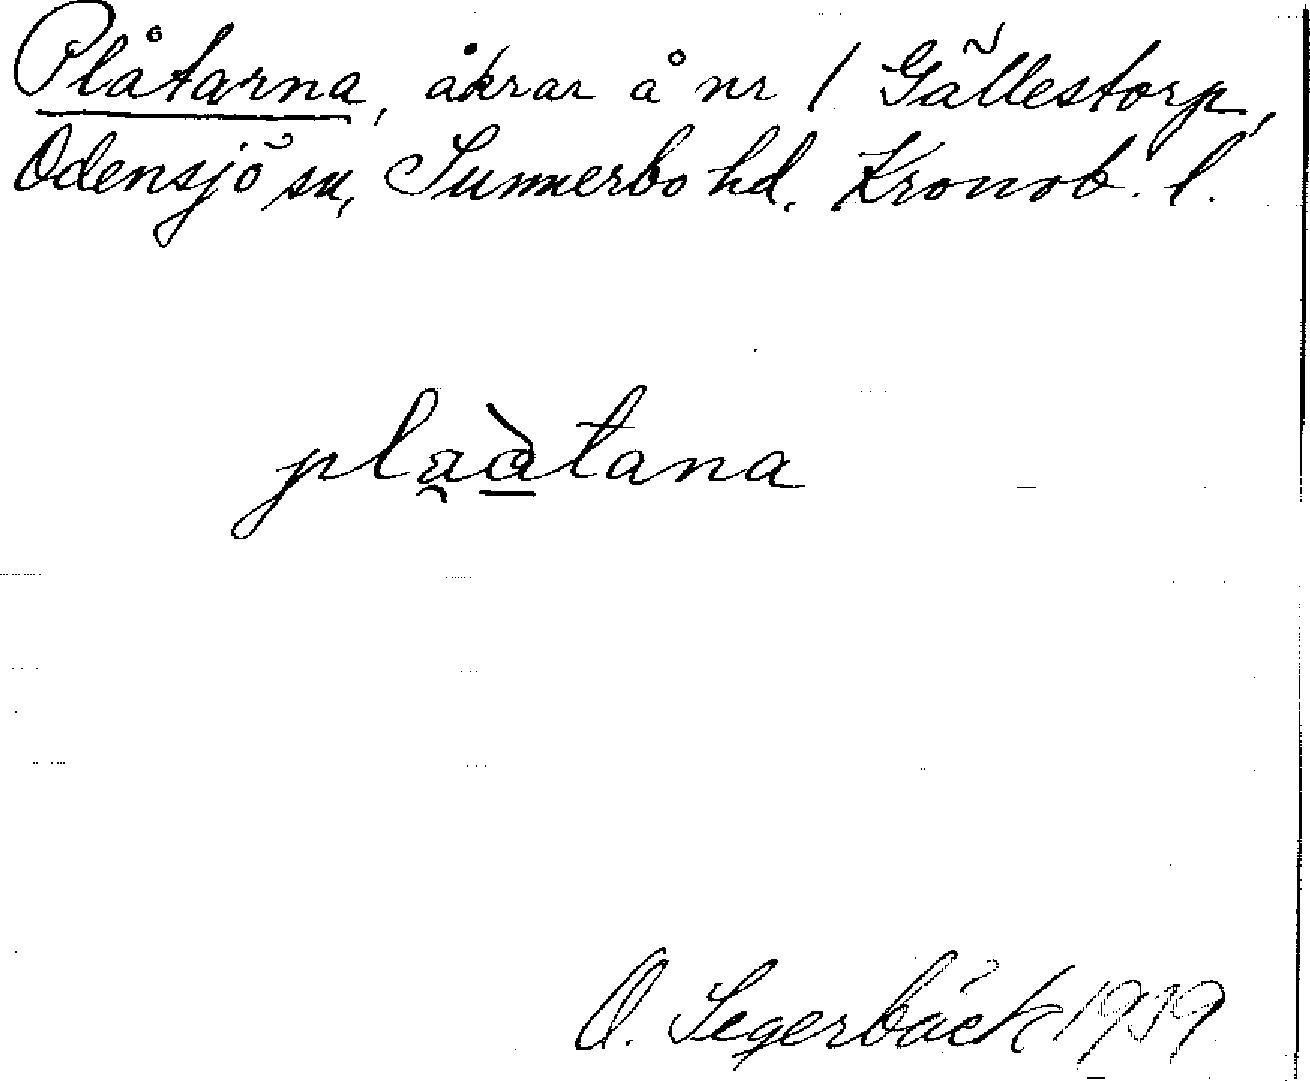 Plåtarna, åkrar å nr 1 Gällestorp,
Odensjö sn, Sunnerbo hd. Kronob. l.
pla̯à̲tana
O. Segerbäck 1939